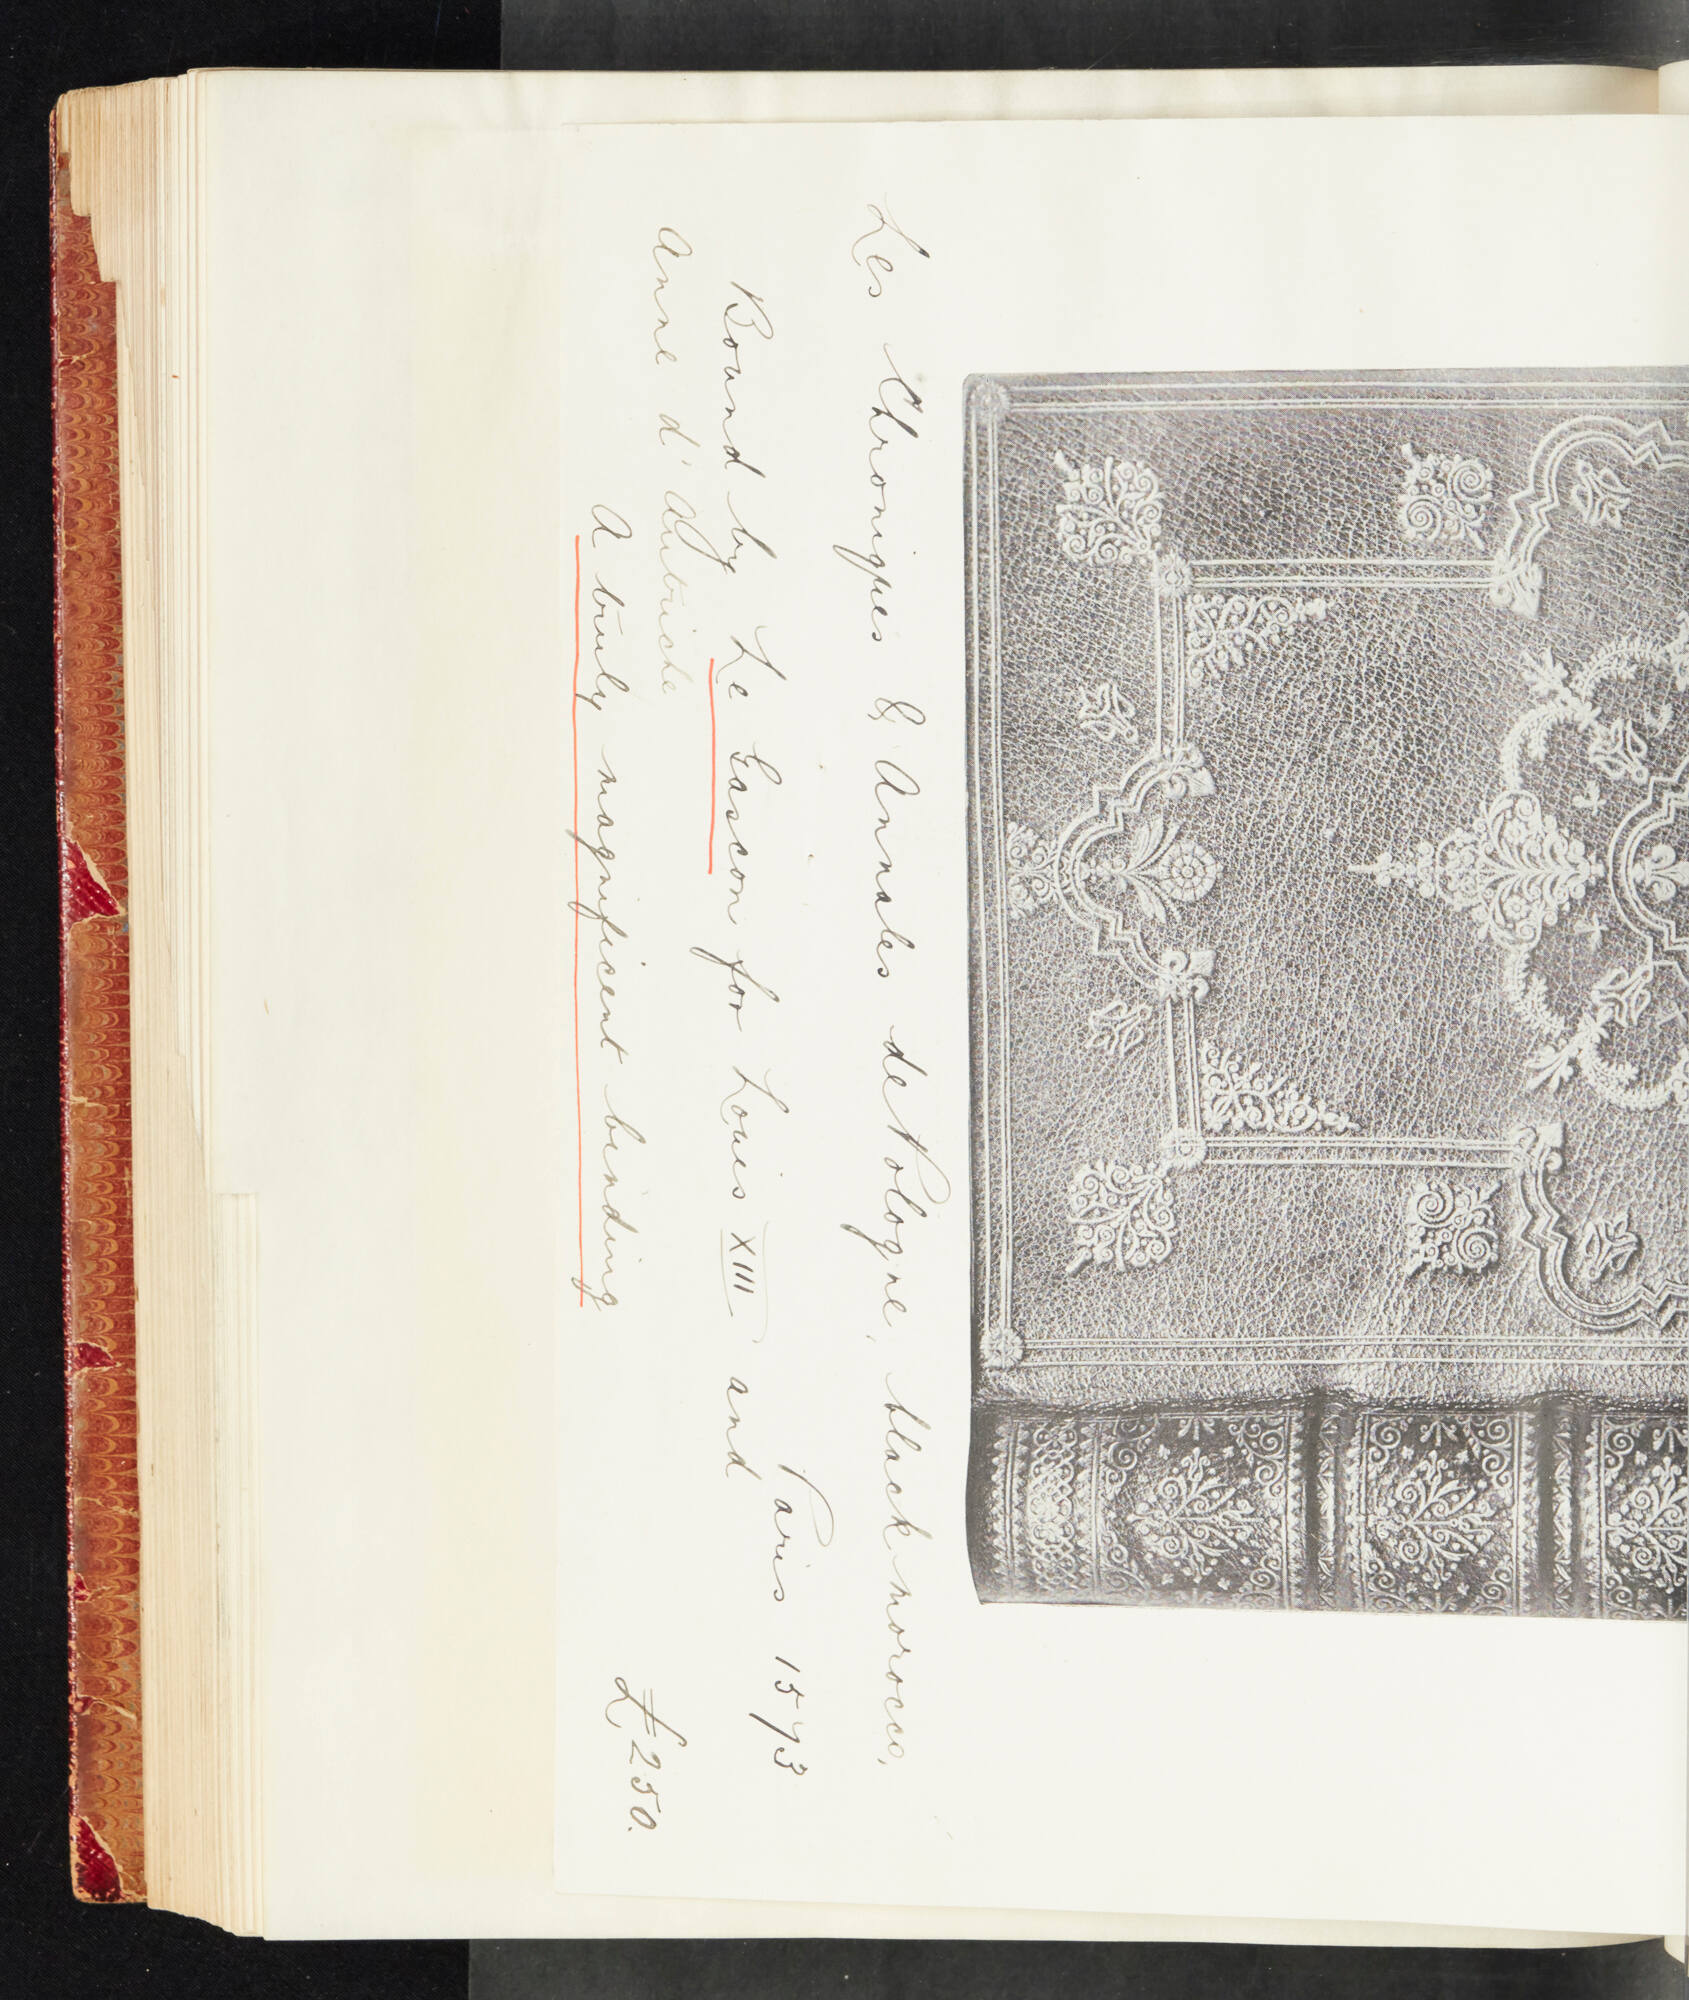 Les Chroniques & Annales de Pologne, black morocco,
Paris 1573
Bound by Le Gascon for Louis XIII and
Anne d'Autriche
£250.
A truly magnificent binding